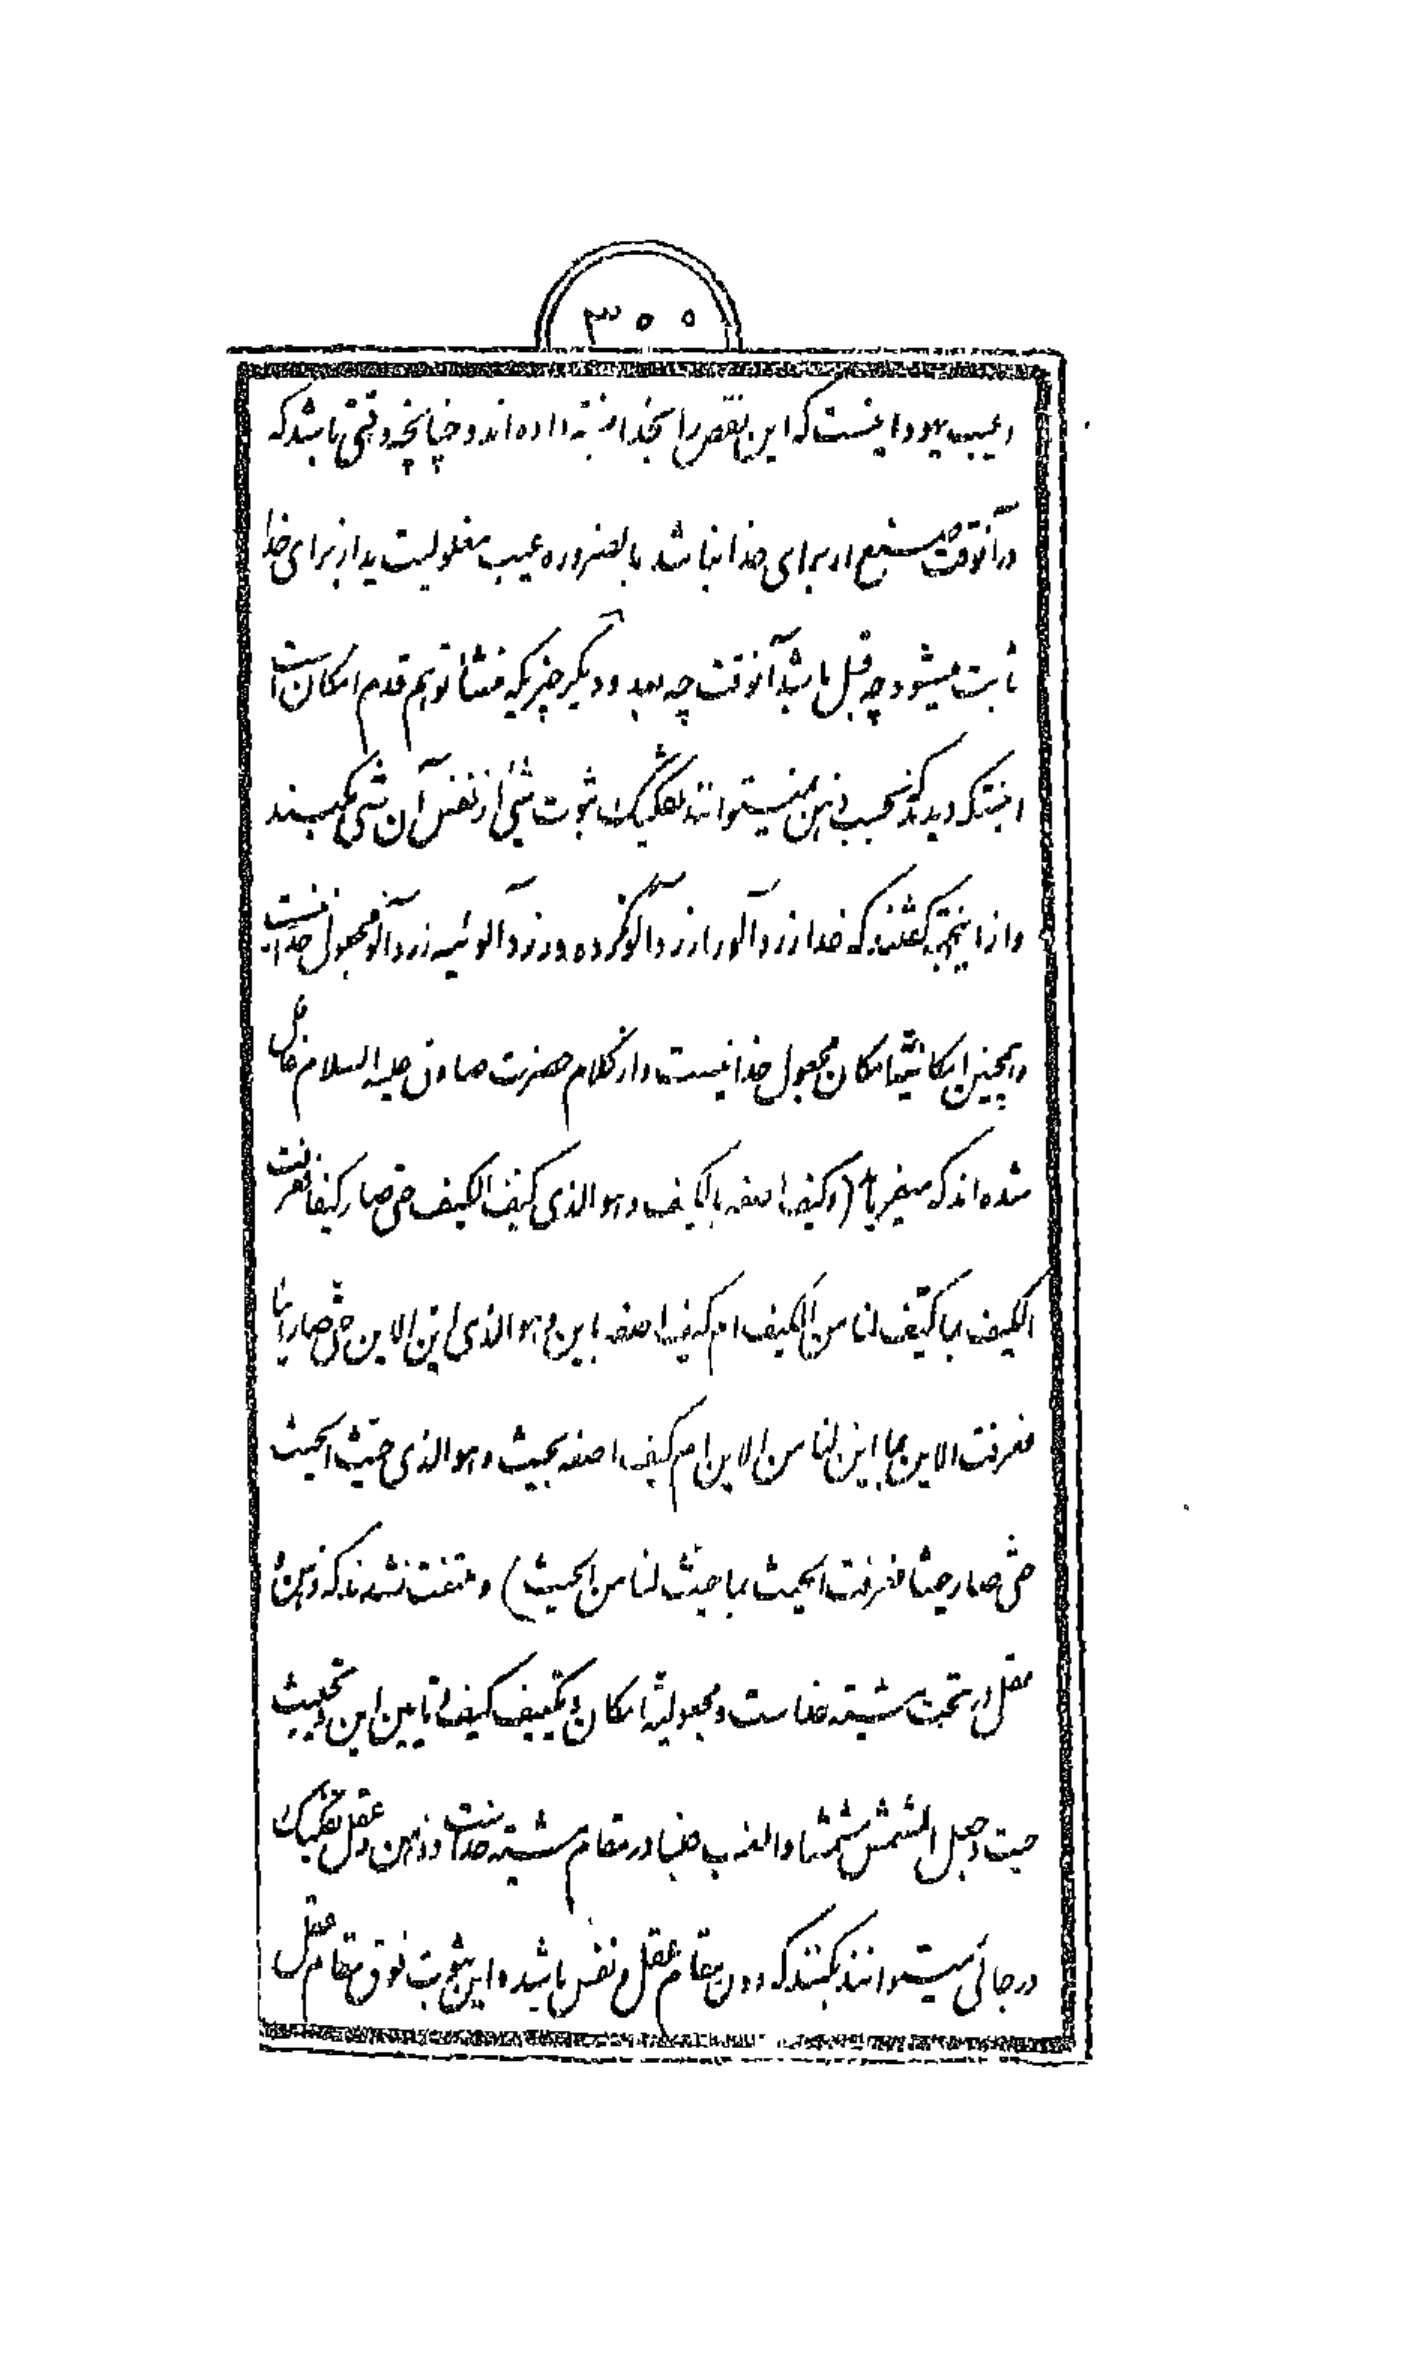 ۳۰۰
و عیب یهود اینست که این نقص را بخدا نسبته داده‌اند و چنانچه وقتی باشد که
در آنوقت صنیع از برای خدا نباشد بالضروره عیب مغلولیت ید از برای خدا
ثابت میشود چه قبل باشد آنوقت چه بعد و دیگر چیزیکه منشأ توهم قدم امکان است
اینستکه دیدند که بحسب ذهن نمیتوانند تفکیک ثبوت شیئ از نفس آن شی بکنند
و از اینجهة گفتند که خدا زردآلو را زردآلو نکرده و زردآلوئیه زردآلو مجعول خدا نیست
و همچنین امکانیة امکان مجعول خدا نیست و از کلام حضرت صادق علیه السلام غافل
شده‌اند که میفرماید (و کیف اصفه بالکیف و هو الذی کیف الکیف حتی صار کیفا فعرفت
الکیف بما کیف لنا من الکیف ام کیف اصفه باین و هو الذی این الاین حتی صار اینا
فعرفت الاین بما این لنا من الاین ام کیف اصفه بحیث و هو الذی حیث الحیث
حتی صار حیثا فعرفت الحیث بما حیث لنا من الحیث) و ملتفت نشدند که ذهن و
عقل در تحت مشیته خداست و مجعولیة امکان و تکییف کیف و تایین این و تحییث
حیث و جعل الشمس شمسا و در مقام مشیته خداست و ذهن و عقل تفکیک
در جائی میتوانند بکنند که دون مقام عقل و نفس باشد و این ثبوت فوق مقام عقل